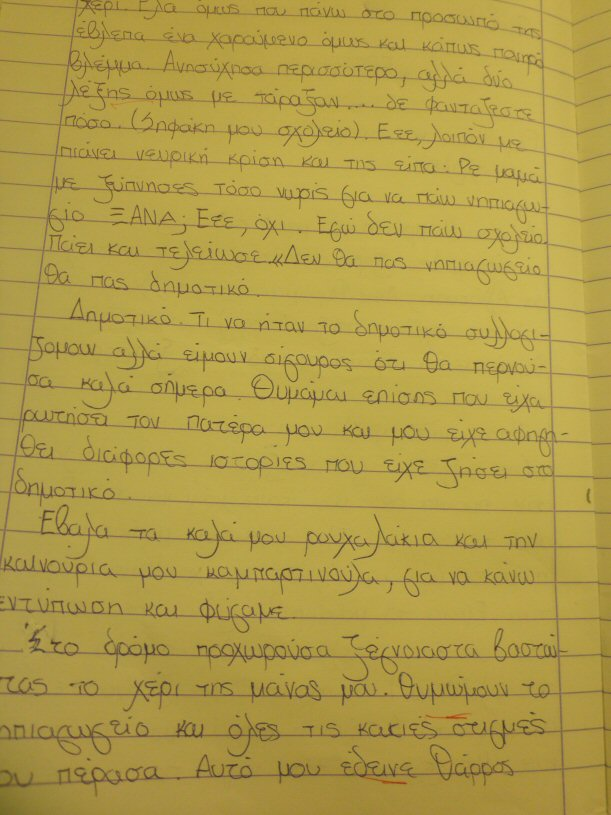 χέρι. Έλα όμως που πάνω στο προσωπό της
έβλεπα ένα χαρούμενο όμως και κάπως πονηρό
βλέμμα. Ανησύχησα περισσότερο, αλλά δύο
λέξης όμως με τάραξαν.... δε φαντάζεστε
πόσο. (Σηφάκη μου σχολείο). Εεε, λοιπόν με
πιάνει νευρική κρίση και της είπα: Ρε μαμά
με ξύπνησες τόσο νωρίς για να πάω νηπιαγω-
γείο ΞΑΝΑ; Εεε, όχι. Εγώ δεν πάω σχολείο.
Πάει και τελείωσε. «Δεν θα πας νηπιαγωγείο
θα πας δημοτικό.
Δημοτικό. Τι να ήταν το δημοτικό συλλογι-
ζόμουν αλλά είμουν σίγουρος ότι θα περνού-
σα καλά σήμερα. Θυμάμαι επίσης που είχα
ρωτήσει τον πατέρα μου και μου είχε αφηγη-
θεί διάφορες ιστορίες που είχε ζήσει στο
δημοτικό.
Έβαλα τα καλά μου ρουχαλάκια και την
καινούρια μου καμπαρτινούλα, για να κάνω
εντύπωση και φύγαμε.
Στο δρόμο προχωρούσα ξέγνοιαστα βαστώ-
τας το χέρι της μάνας μου. Θυμώμουν το
νηπιαγωγείο και όλες τις κακιές στιγμές
ου πέρασα. Αυτό μου έδεινε θάρρος